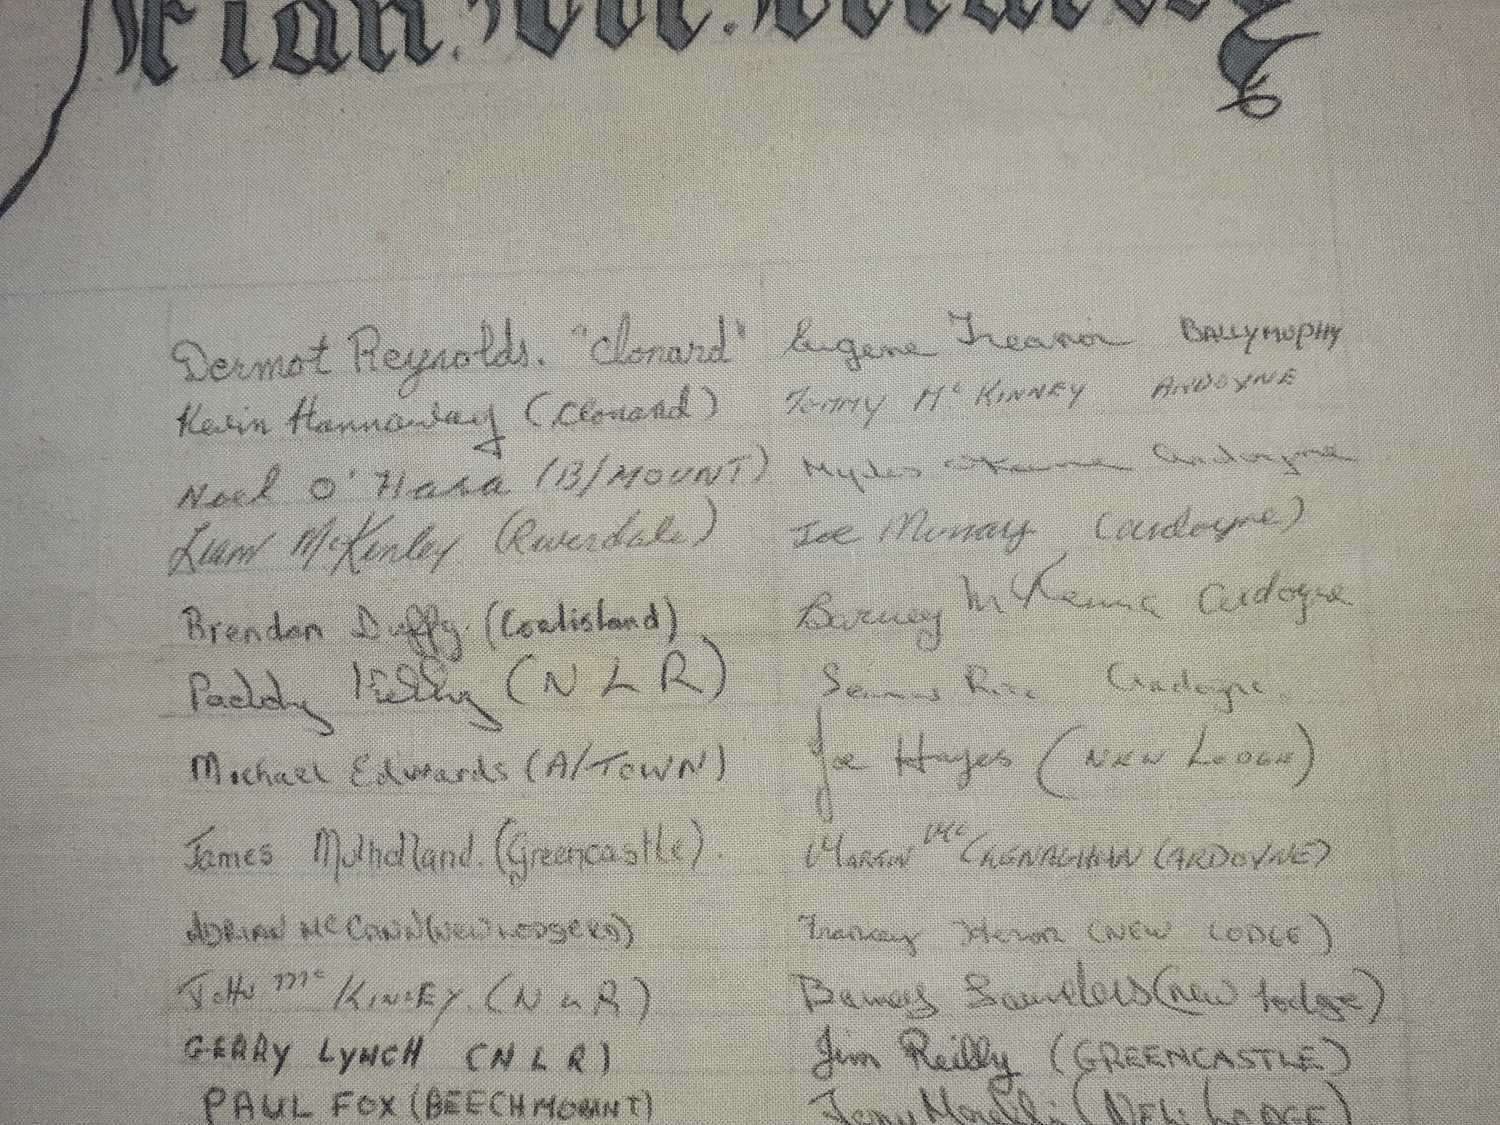 Dermot Reynolds. "Clonard" Eugene Treanor BALLYMUPHY
Kevin Hannaway (Clonard) TOMMY McKINNEY ARDOYNE
Noel O'Hara (B/MOUNT) Myles ardoyne
Liam McKinley (Riverdale) Joe Murray (ardoyne)
Brendan Duffy. (Coalisland) Barney McKenna ardoyne
Paddy Kelly (N L R) Seamus Rice Ardoyne.
Michael Edwards (A/TOWN) Joe Hayes (NEW LODGE)
James Mulholland. (Greencastle). MARTIN (ARDOYNE)
ADRIAN McCANN (NEW LODGE RD) Francey Heron (NEW LODGE)
McKINLEY. (N L R) Barney Saunders (new lodge)
GERRY LYNCH (N L R) Jim Reilly (GREENCASTLE)
PAUL FOX (BEECHMOUNT) (NEW LODGE)